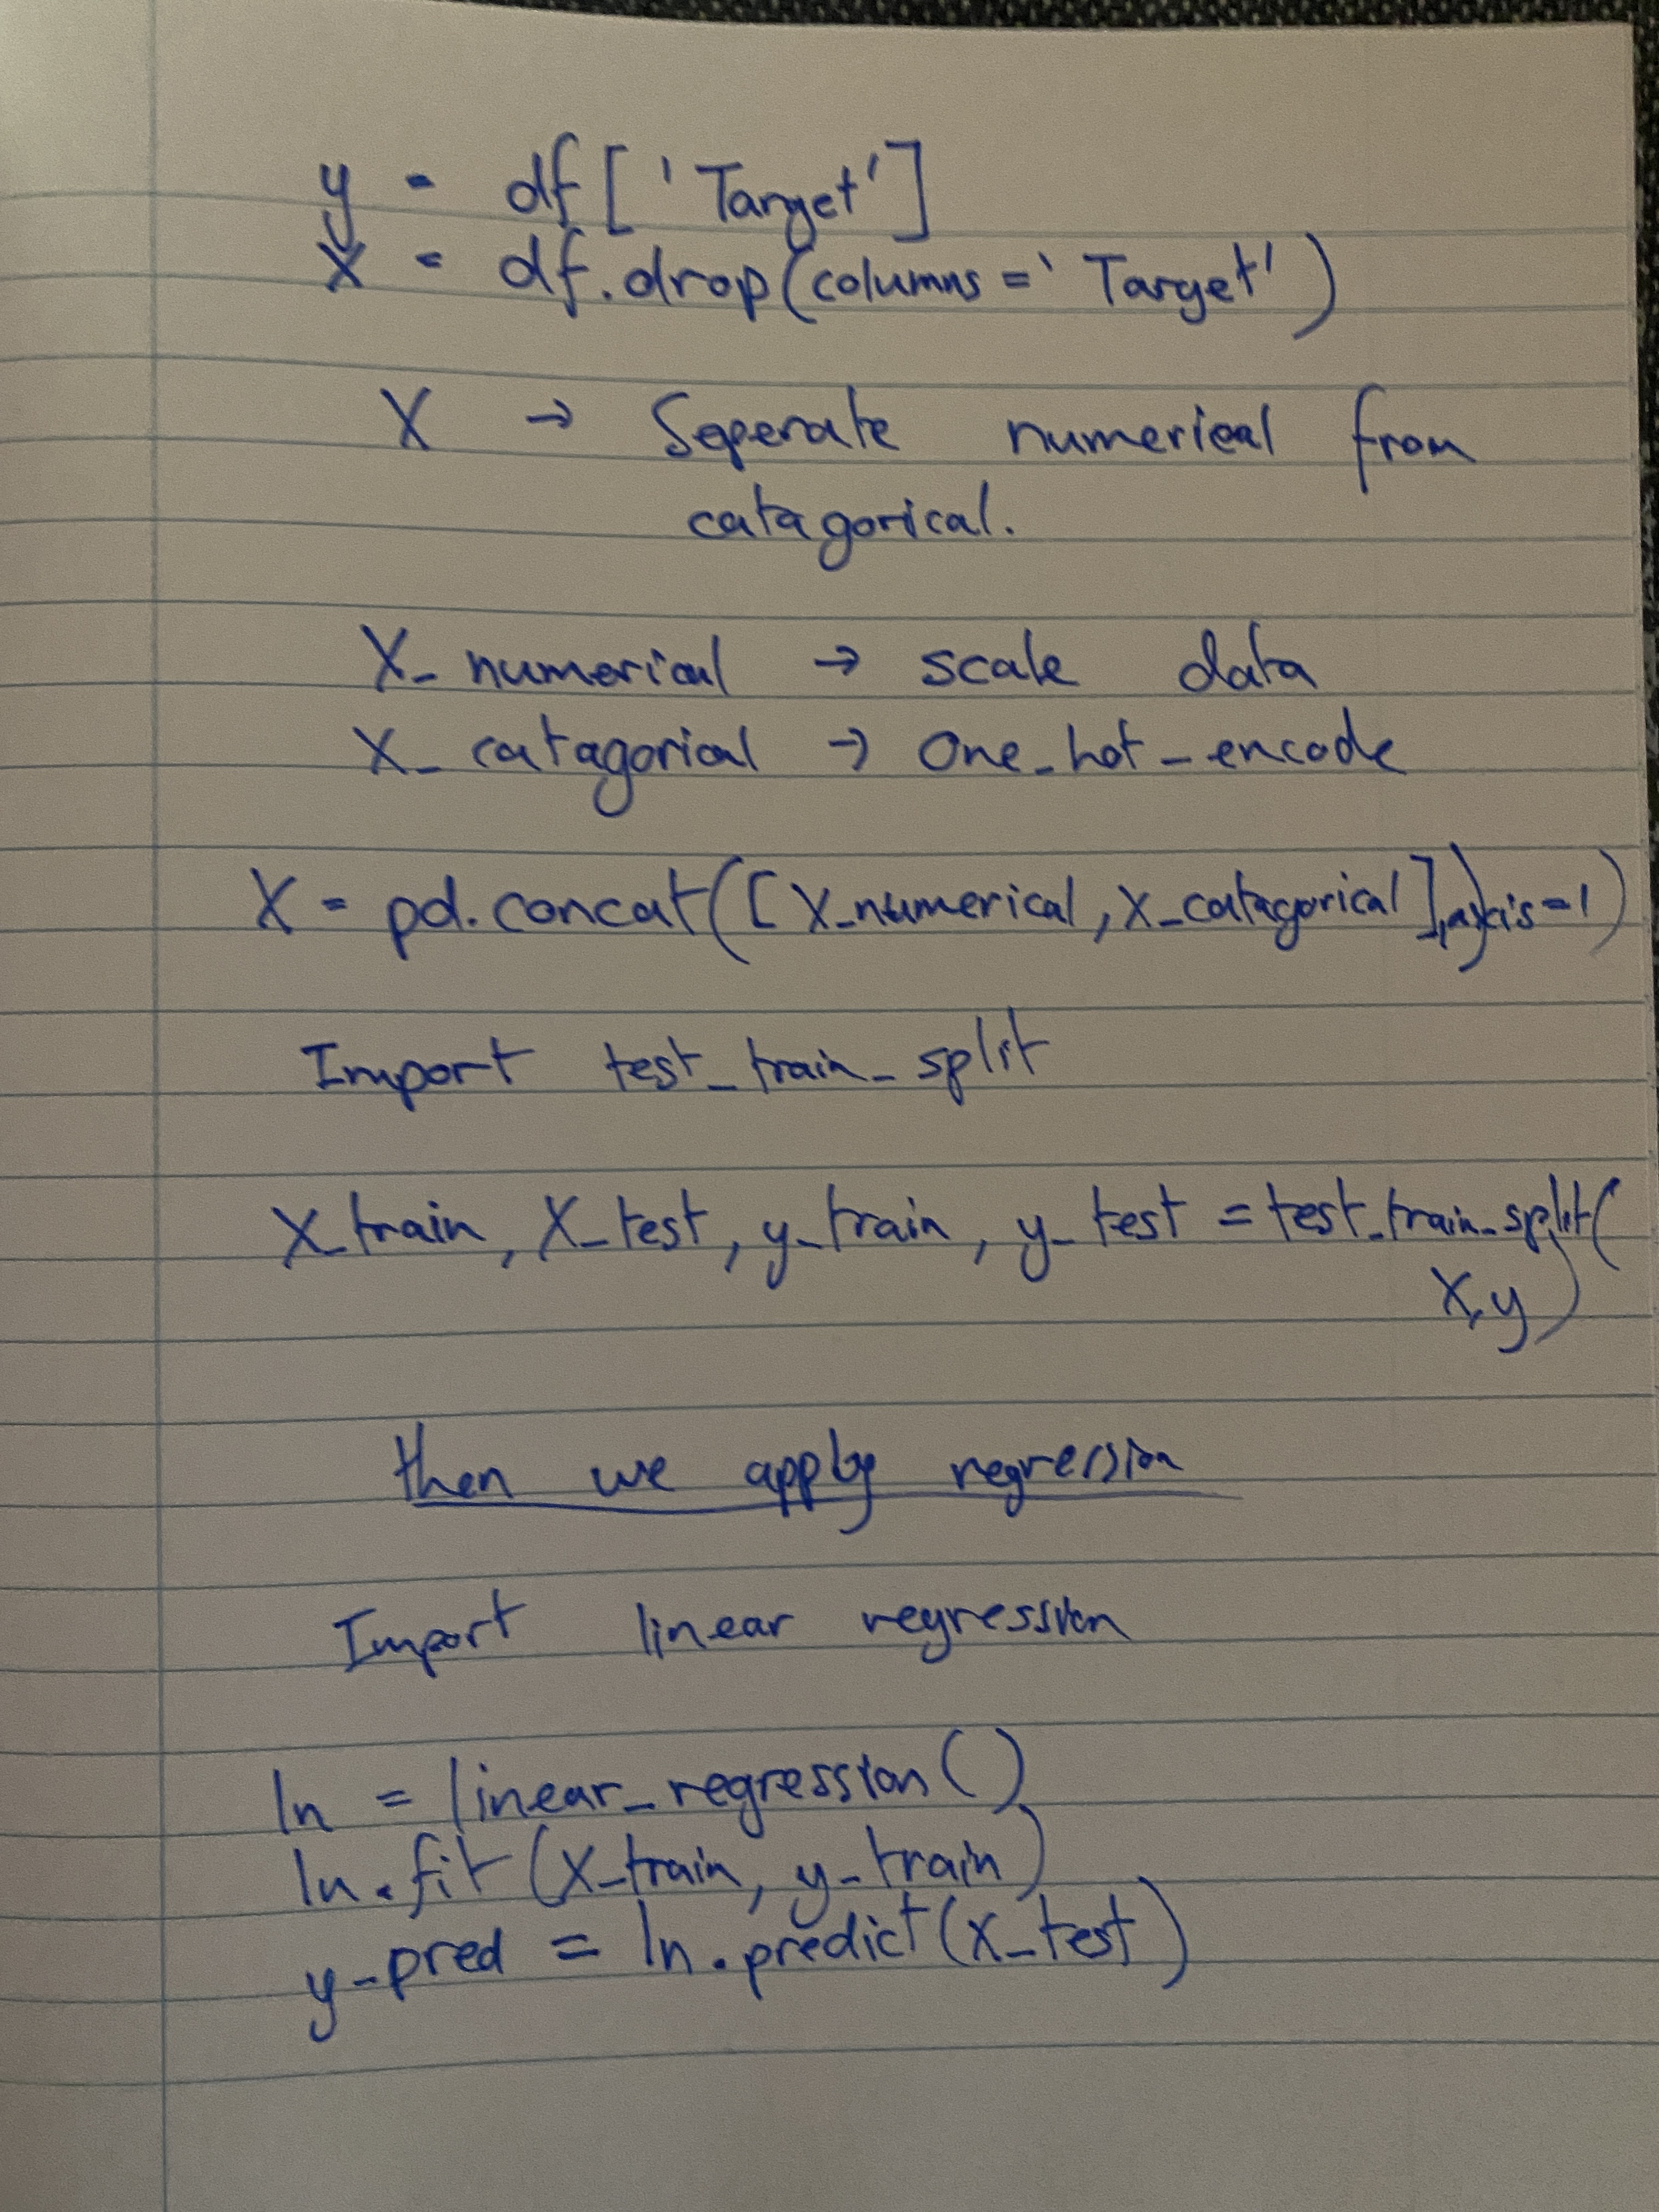 y = df['Target']
X = df.drop(columns='Target')
X → Seperate numerical from
catagorical.
X_numerical → scale data
X_catagorical → One_hot_encode
X = pd.concat([X_numerical, X_catagorical],axis=1)
Import test_train_split
X_train, X_test, y_train, y_test = test_train_split(
X,y)
then we apply regression
Import linear regression
ln = linear_regression()
ln.fit(X_train, y_train)
y_pred = ln.predict(X_test)